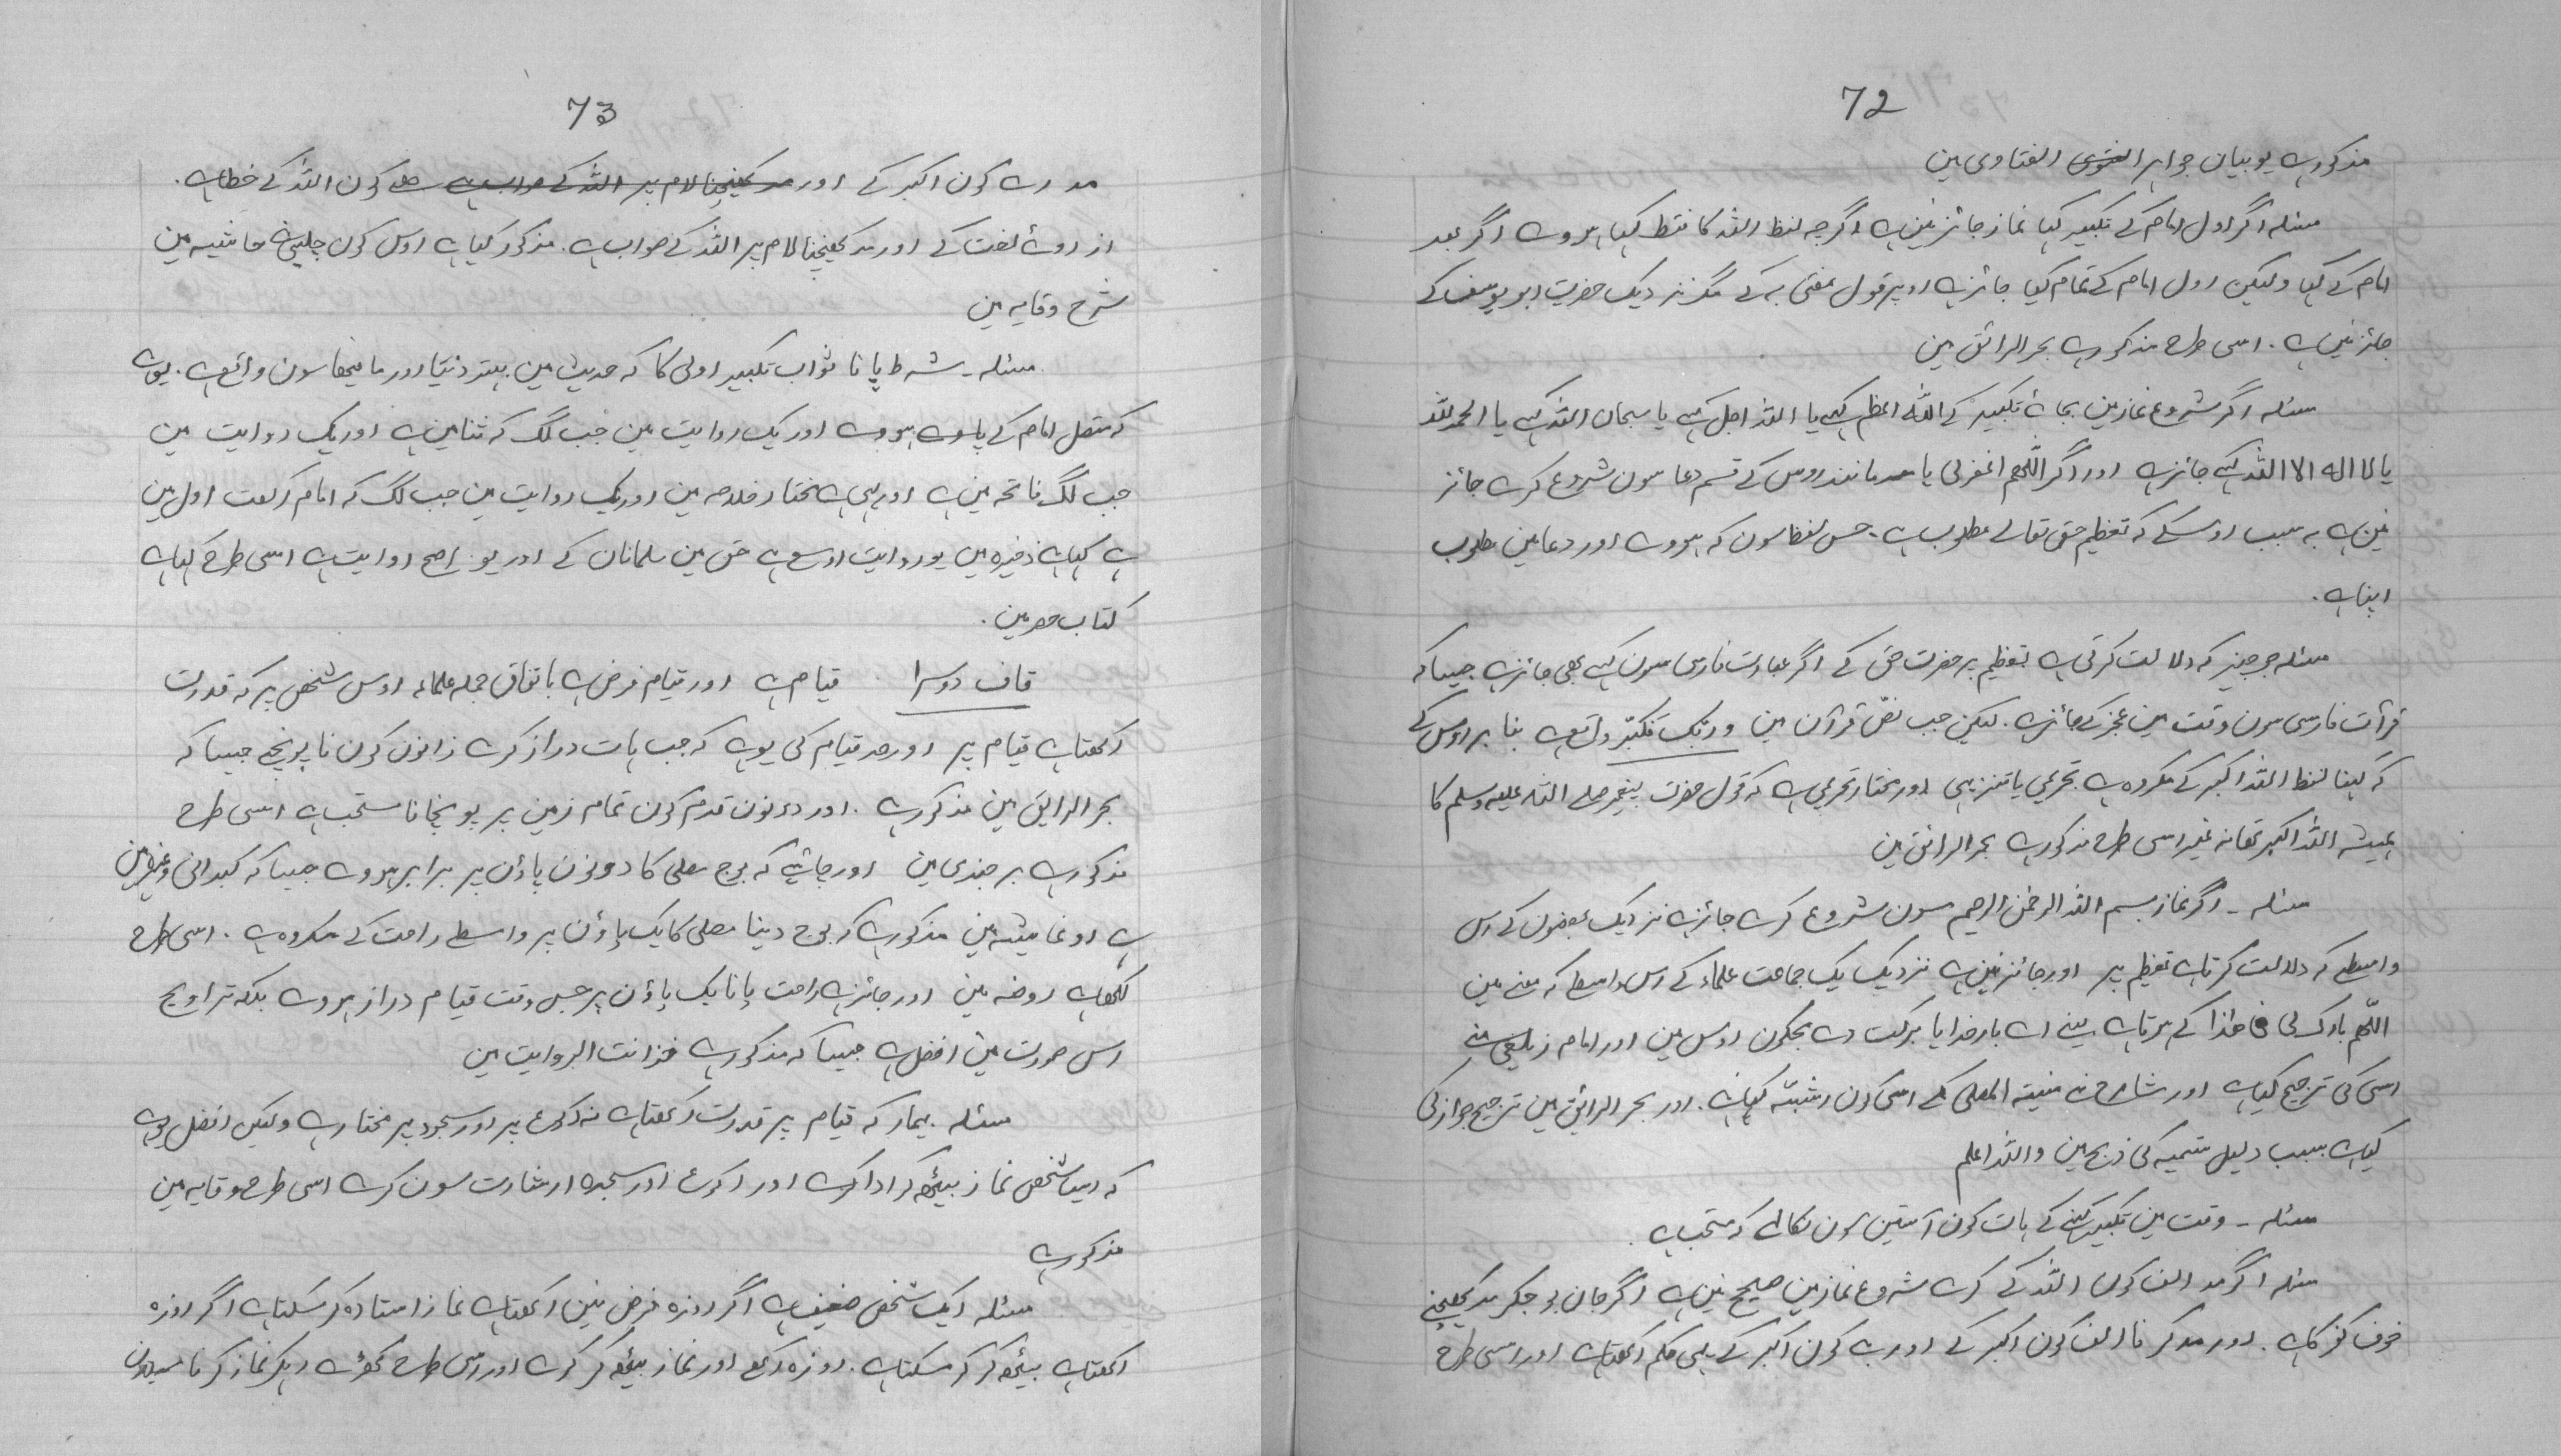 72
مذکور ہے یو بیان جواہر الفتوی الفتاوی مین
مسئلہ اگر اول امام کے تکبیر کہا نماز جائز نین ہے اگرچہ لفظ اللہ کا فقط کہا ہووے اگر بعد
امام کے کہا ولیکن اول امام کے تمام کیا جائز ہے اوپر قول مفتی بہ کے مگر نزدیک حضرت ابو یوسف کے
جائز نین ہے ۔ اسی طرح مذکور ہے بحر الرائق مین
مسئلہ اگر شروع نماز مین بجائے تکبیر کے اللہ اعظم کہے یا اللہ اجل کہے یا سبحان اللہ کہے یا الحمد للہ
یا لا الہ الا اللہ کہے جائز ہے اور اگر اللّٰہم اغفرلی یا مانند اوس کے قسم دعا سون شروع کرے جائز
نین ہے بہ سبب اوسکے کہ تعظیم حق تعالے مطلوب ہے ۔ جس لفظ سون کہ ہووے اور دعا مین مطلوب
اپنا ہے ۔
مسئلہ جو چیز کہ دلالت کرتی ہے تعظیم پر حضرت حق کے اگر عبارت فارسی سون کہے بھی جائز ہے جیسا کہ
قرآت فارسی سون وقت مین عجز کے جائز ہے ۔ لیکن جب نصّ قرآن مین وربّک فکبّر واقع ہے بنا بر اوس کے
کہ کہنا لفظ اللہ اکبر کے مکروہ ہے تحریمی یا تنزیہی اور مختار تحریمی ہے کہ قول حضرت پیغمبر صلے اللہ علیہ وسلم کا
ہمیشہ اللہ اکبر تھا نہ غیر اسی طرح مذکور ہے بحر الرائق مین
مسئلہ ۔ اگر نماز بسم اللہ الرحمٰن الرحیم سون شروع کرے جائز ہے نزدیک بعضون کے اس
واسطے کہ دلالت کرتا ہے تعظیم پر اور جائز نین ہے نزدیک یک جماعت علماء کے اس واسطے کہ معنے مین
اللّٰہم بارک لی فی ھذا کے ہوتا ہے یعنے اے بار خدایا برکت دے مجکون اوس مین اور امام زیلعی نے
اسی کی ترجیح کیا ہے اور شارح نے منیۃ المصلی کے اسی کون اشبہ کہا ہے ۔ اور بحر الرائق مین ترجیح جواز کی
کیا ہے بسبب دلیل تسمیہ کی ذبح مین واللہ اعلم
مسئلہ ۔ وقت مین تکبیر کہنے کے ہات کون آستین سون نکالے کہ مستحب ہے ۔
مسئلہ اگر مد الف کون اللہ کے کرے شروع نماز مین صحیح نین ہے اگر جان بوجکر مد کھینچے
خوف کفر کا ہے ۔ اور مد کرنا الف کون اکبر کے اور ب کون اکبر کے یہی حکم رکھتا ہے اور اسی طرح
73
مد رے کون اکبر کے اور مد کھینچنا لام پر اللہ کے صواب ہے کون اللہ کے خطا ہے ۔
از روئے لغت کے اور مد کھینچنا لام پر اللہ کے صواب ہے ۔ مذکور کیا ہے اوس کون چلپی نے حاشیہ مین
شرح وقایہ مین
مسئلہ ۔ شرط پانا ثواب تکبیر اولی کا کہ حدیث مین بہتر دنیا اور مافیھا سون واقع ہے ۔ یوہے
کہ متصل امام کے پاوے ہووے اور یک روایت مین جب لگ کہ ثنا مین ہے اور یک روایت مین
جب لگ فاتحہ مین ہے اور یہی ہے مختار خلاصہ مین اور یک روایت مین جب لگ کہ امام رکعت اول مین
ہے کہا ہے ذخیرہ مین یو روایت اوسع ہے حق مین مسلمانان کے اور یو اصح روایت ہے اسی طرح کہا ہے
کتاب حصر مین ۔
قاف دوسرا قیام ہے اور قیام فرض ہے باتفاق جملہ علماء اوس شخص پر کہ قدرت
رکھتا ہے قیام پر اور حد قیام کی یو ہے کہ جب ہات دراز کرے زانون کون نا پونچے جیسا کہ
بحر الرایق مین مذکور ہے ۔ اور دونون قدم کون تمام زمین پر پونچانا مستحب ہے اسی طرح
مذکور ہے برجندی مین اور چاہئے کہ بوج مصلی کا دونون پاؤں پر برابر ہووے جیسا کہ کیدانی وغیرہ مین
ہے او نمایشہ مین مذکور ہے کہ بوج دینا مصلی کا یک پاؤں پر واسطے راحت کے مکروہ ہے ۔ اسی طرح
لکھا ہے روضہ مین اور جائز ہے راحت پانا یک پاؤں پر جس وقت قیام دراز ہووے بلکہ تراویح
اس صورت مین افضل ہے جیسا کہ مذکور ہے خزانت الروایت مین
مسئلہ ۔ بیمار کہ قیام پر قدرت رکھتا ہے نہ رکوع پر اور سجود پر مختار ہے ولیکن افضل یو ہے
کہ ایسا شخص نماز بیٹھ کر ادا کرے اور رکوع اور سجدہ ارشارت سون کرے اسی طرح وقایہ مین
مذکور ہے
مسئلہ ایک شخص ضعیف ہے اگر روزہ فرض نین رکھتا ہے نماز استادہ کر سکتا ہے اگر روزہ
رکھتا ہے بیٹھ کر کر سکتا ہے ۔ روزہ رکھے اور نماز بیٹھ کر کرے اور اسی طرح کھڑے رہکر نماز کرنا